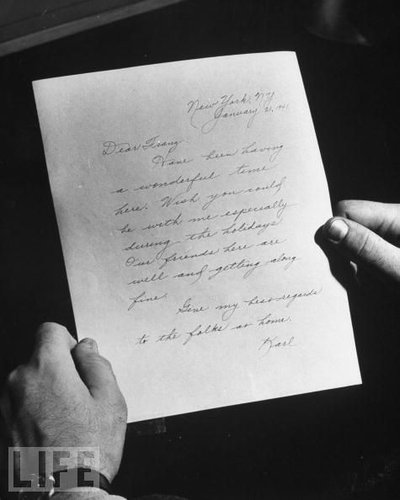 New York, NY
January 2, 1941
Dear Franz:
Have been having
a wonderful time
here. Wish you could
be with me especially
during the holidays
Our friends here are
well and getting along
fine.
Give my best regards
to the folks at home.
Karl
LIFE